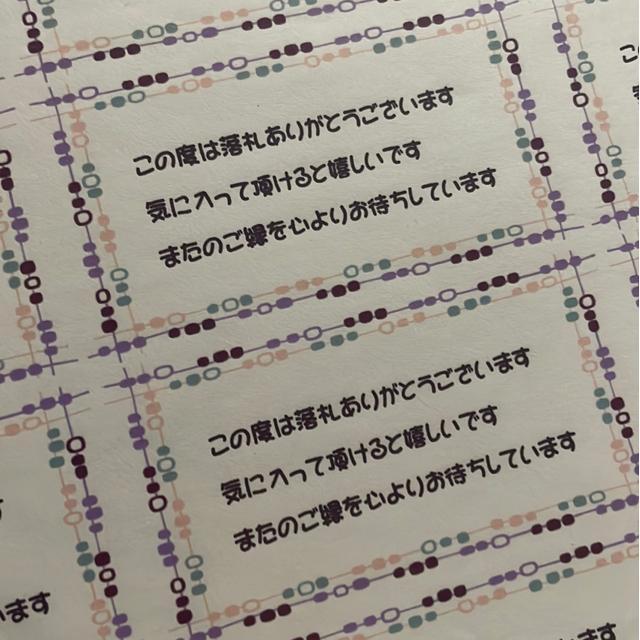 この度は落札ありがとうございます
気に入って頂けると嬉しいです
またのご縁を心よりお待ちしています
この度は落札ありがとうございます
気に入って頂けると嬉しいです
またのご縁を心よりお待ちしています
います
います